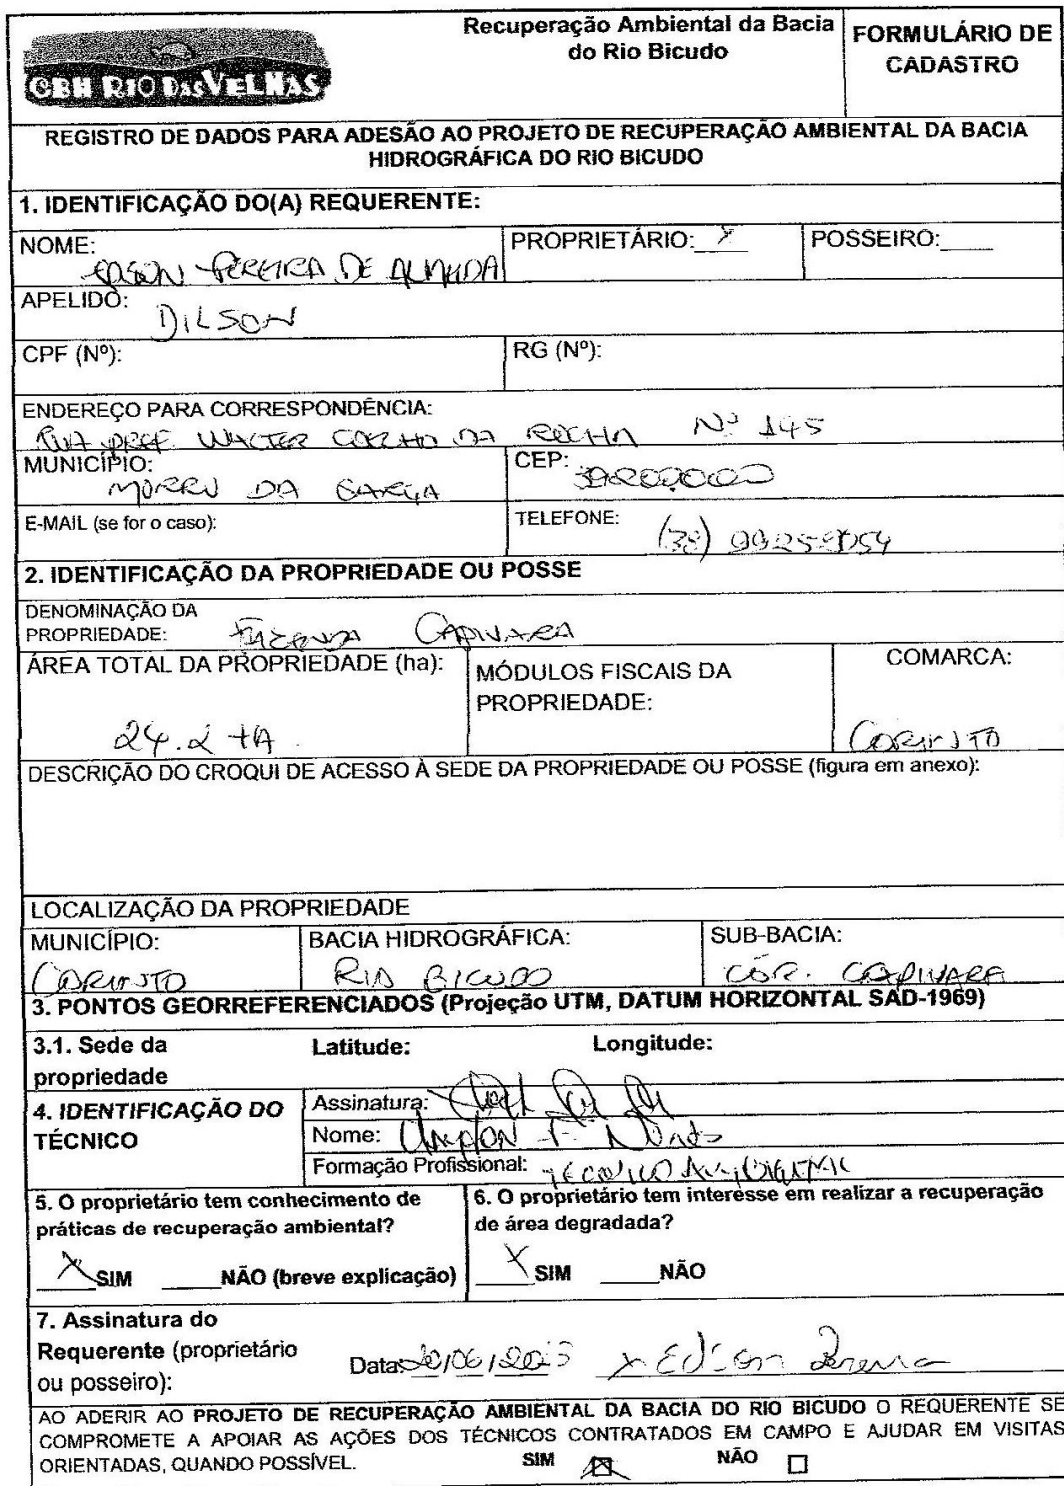 CBH RIO DAS VELHAS
Recuperação Ambiental da Bacia
do Rio Bicudo
FORMULÁRIO DE
CADASTRO
REGISTRO DE DADOS PARA ADESÃO AO PROJETO DE RECUPERAÇÃO AMBIENTAL DA BACIA
HIDROGRÁFICA DO RIO BICUDO
1. IDENTIFICAÇÃO DO(A) REQUERENTE:
NOME: PEREIRA DE ALMEIDA
PROPRIETÁRIO: X
POSSEIRO:____
APELIDO: DILSON
CPF (Nº):
RG (Nº):
ENDEREÇO PARA CORRESPONDÊNCIA:
RUA PROF. WALTER COELHO DA ROCHA Nº 145
MUNICÍPIO: MORRO DA GARÇA
CEP:
E-MAIL (se for o caso):
TELEFONE: (38)
2. IDENTIFICAÇÃO DA PROPRIEDADE OU POSSE
DENOMINAÇÃO DA
PROPRIEDADE: FAZENDA CAPIVARA
ÁREA TOTAL DA PROPRIEDADE (ha):
24.2 HA.
MÓDULOS FISCAIS DA
PROPRIEDADE:
COMARCA:
CORINTO
DESCRIÇÃO DO CROQUI DE ACESSO À SEDE DA PROPRIEDADE OU POSSE (figura em anexo):
LOCALIZAÇÃO DA PROPRIEDADE
MUNICÍPIO:
CORINTO
BACIA HIDROGRÁFICA:
RIO BICUDO
SUB-BACIA:
CÓR. CAPIVARA
3. PONTOS GEORREFERENCIADOS (Projeção UTM, DATUM HORIZONTAL SAD-1969)
3.1. Sede da
propriedade
Latitude:
Longitude:
4. IDENTIFICAÇÃO DO
TÉCNICO
Assinatura:
Nome:
Formação Profissional: TÉCNICO AMBIENTAL
5. O proprietário tem conhecimento de
práticas de recuperação ambiental?
X SIM ____NÃO (breve explicação)
6. O proprietário tem interesse em realizar a recuperação
de área degradada?
X SIM ____NÃO
7. Assinatura do
Requerente (proprietário
ou posseiro):
Data: 20/06/2023 X Edison Pereira
AO ADERIR AO PROJETO DE RECUPERAÇÃO AMBIENTAL DA BACIA DO RIO BICUDO O REQUERENTE SE
COMPROMETE A APOIAR AS AÇÕES DOS TÉCNICOS CONTRATADOS EM CAMPO E AJUDAR EM VISITAS
ORIENTADAS, QUANDO POSSÍVEL. SIM ☒ NÃO ☐